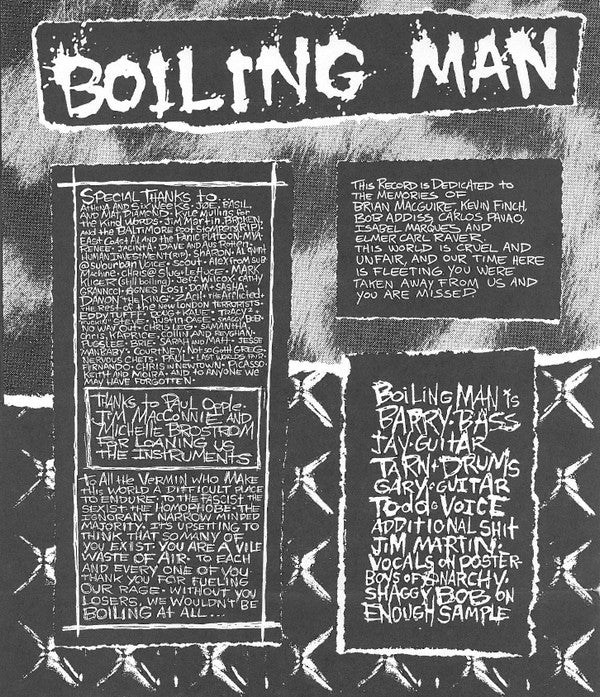 BOILING MAN
SPECIAL THANKS to...
ATHENA AND SIX WEEKS. JOE, BASIL,
AND MATT DIAMOND. KYLE MULLINS FOR
THE KIND WORDS. JIM MARTIN, BROKEN,
AND THE BALTIMORE FOOT STOMP PARTY (RIP)
EAST COAST AL AND THE PANIC PLATOON. MYA
RENEE. JACINTA. DAVE AND AUS ROTTEN.
HUMAN INVESTMENT (RIP). SHARON. AL QUINT
@ SUBURBAN VOICE. SCOUT. ALEX FROM SLAP
MACHINE. CHRIS @ SLUG & LETTUCE. MARK
KIGER (STILL BOILING). JEFF WILCOX. CATHY
AGNES LOST. DOM. SASHA.
DAMON THE KING. ZACH. THE AFFLICTED.
THE REST OF THE NEW LONDON TERRORISTS.
EDDY TUFFE. DOUG + KALIE. TRACY²
JUSTIN CASE. SHAGGY BEER.
NO WAY OUT. CHRIS LEG. SAMANTHA.
CHRIS CAPRICE. COLLIN AND REYSHAN.
PUGSLEE. BRIE. SARAH AND MATT. JESSE
MANBABY. COURTNEY. NOT SO GAH GREG.
NERVOUS CHETS. PAUL + LAST AMONG FAIR.
FERNANDO. CHRIS IN NEWTOWN. PICASSO.
KEITH AND MOIRA. AND TO ANYONE WE
MAY HAVE FORGOTTEN.
THANKS to PAUL OPPLE.
JIM MACCONNIE AND
MICHELLE BROSTROM
FOR LOANING US
THE INSTRUMENTS
TO ALL THE VERMIN WHO MAKE
THIS WORLD A DIFFICULT PLACE
TO ENDURE. TO THE FASCIST THE
SEXIST THE HOMOPHOBE. THE
IGNORANT NARROW MINDED
MAJORITY. IT'S UPSETTING TO
THINK THAT SO MANY OF
YOU EXIST. YOU ARE A VILE
WASTE OF AIR. TO EACH
AND EVERY ONE OF YOU
THANK YOU FOR FUELING
OUR RAGE. WITHOUT YOU
LOSERS, WE WOULDN'T BE
BOILING AT ALL...
THIS RECORD IS DEDICATED TO
THE MEMORIES OF
BRIAN MACGUIRE, KEVIN FINCH,
BOB ADDISS, CARLOS PAVAO,
ISABEL MARQUES AND
ELMER CARL RAVER
THIS WORLD IS CRUEL AND
UNFAIR, AND OUR TIME HERE
IS FLEETING YOU WERE
TAKEN AWAY FROM US AND
YOU ARE MISSED
BOILING MAN IS
BARRY. BASS
JAY. GUITAR
TARN. DRUMS
GARY. GUITAR
TODD. VOICE
ADDITIONAL SHIT
JIM MARTIN.
VOCALS ON POSTER-
BOYS OF ANARCHY.
SHAGGY BOB ON
ENOUGH SAMPLE